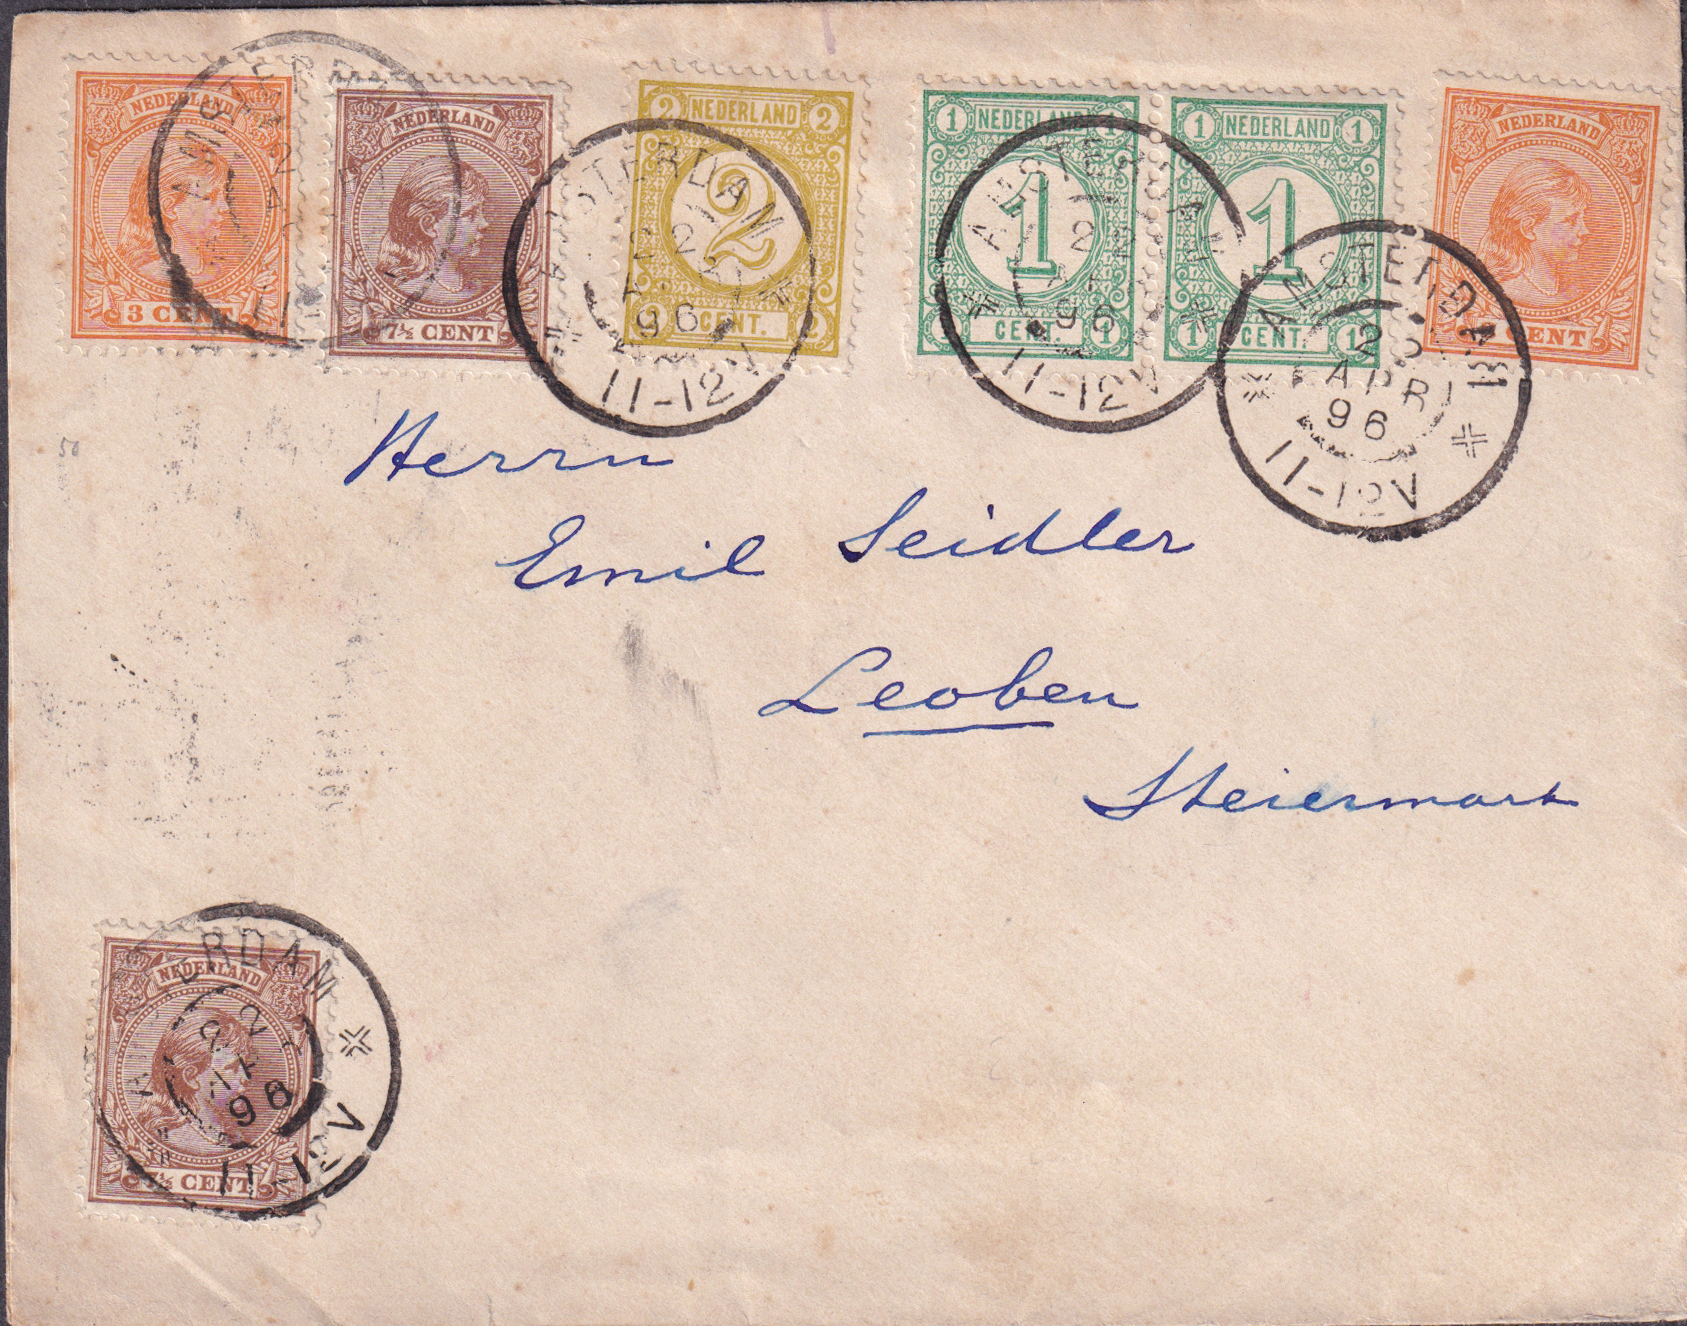 NEDERLAND
3 CENT
NEDERLAND
7½ CENT
2 NEDERLAND 2
2
CENT.
1 NEDERLAND 1
1
1 CENT. 1
1 NEDERLAND 1
1
1 CENT. 1
NEDERLAND
CENT
AMSTERDAM
AMSTERDAM
22
96
11-12V
AMSTERDAM
22
96
11-12V
AMSTERDAM
22
APR
96
11-12V
Herrn
Emil Seidler
Leoben
Steiermark
NEDERLAND
7½ CENT
AMSTERDAM
22
96
11-12V